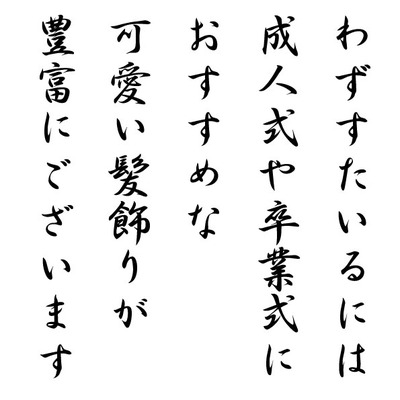 わずすたいるには
成人式や卒業式に
おすすめな
可愛い髪飾りが
豊富にございます